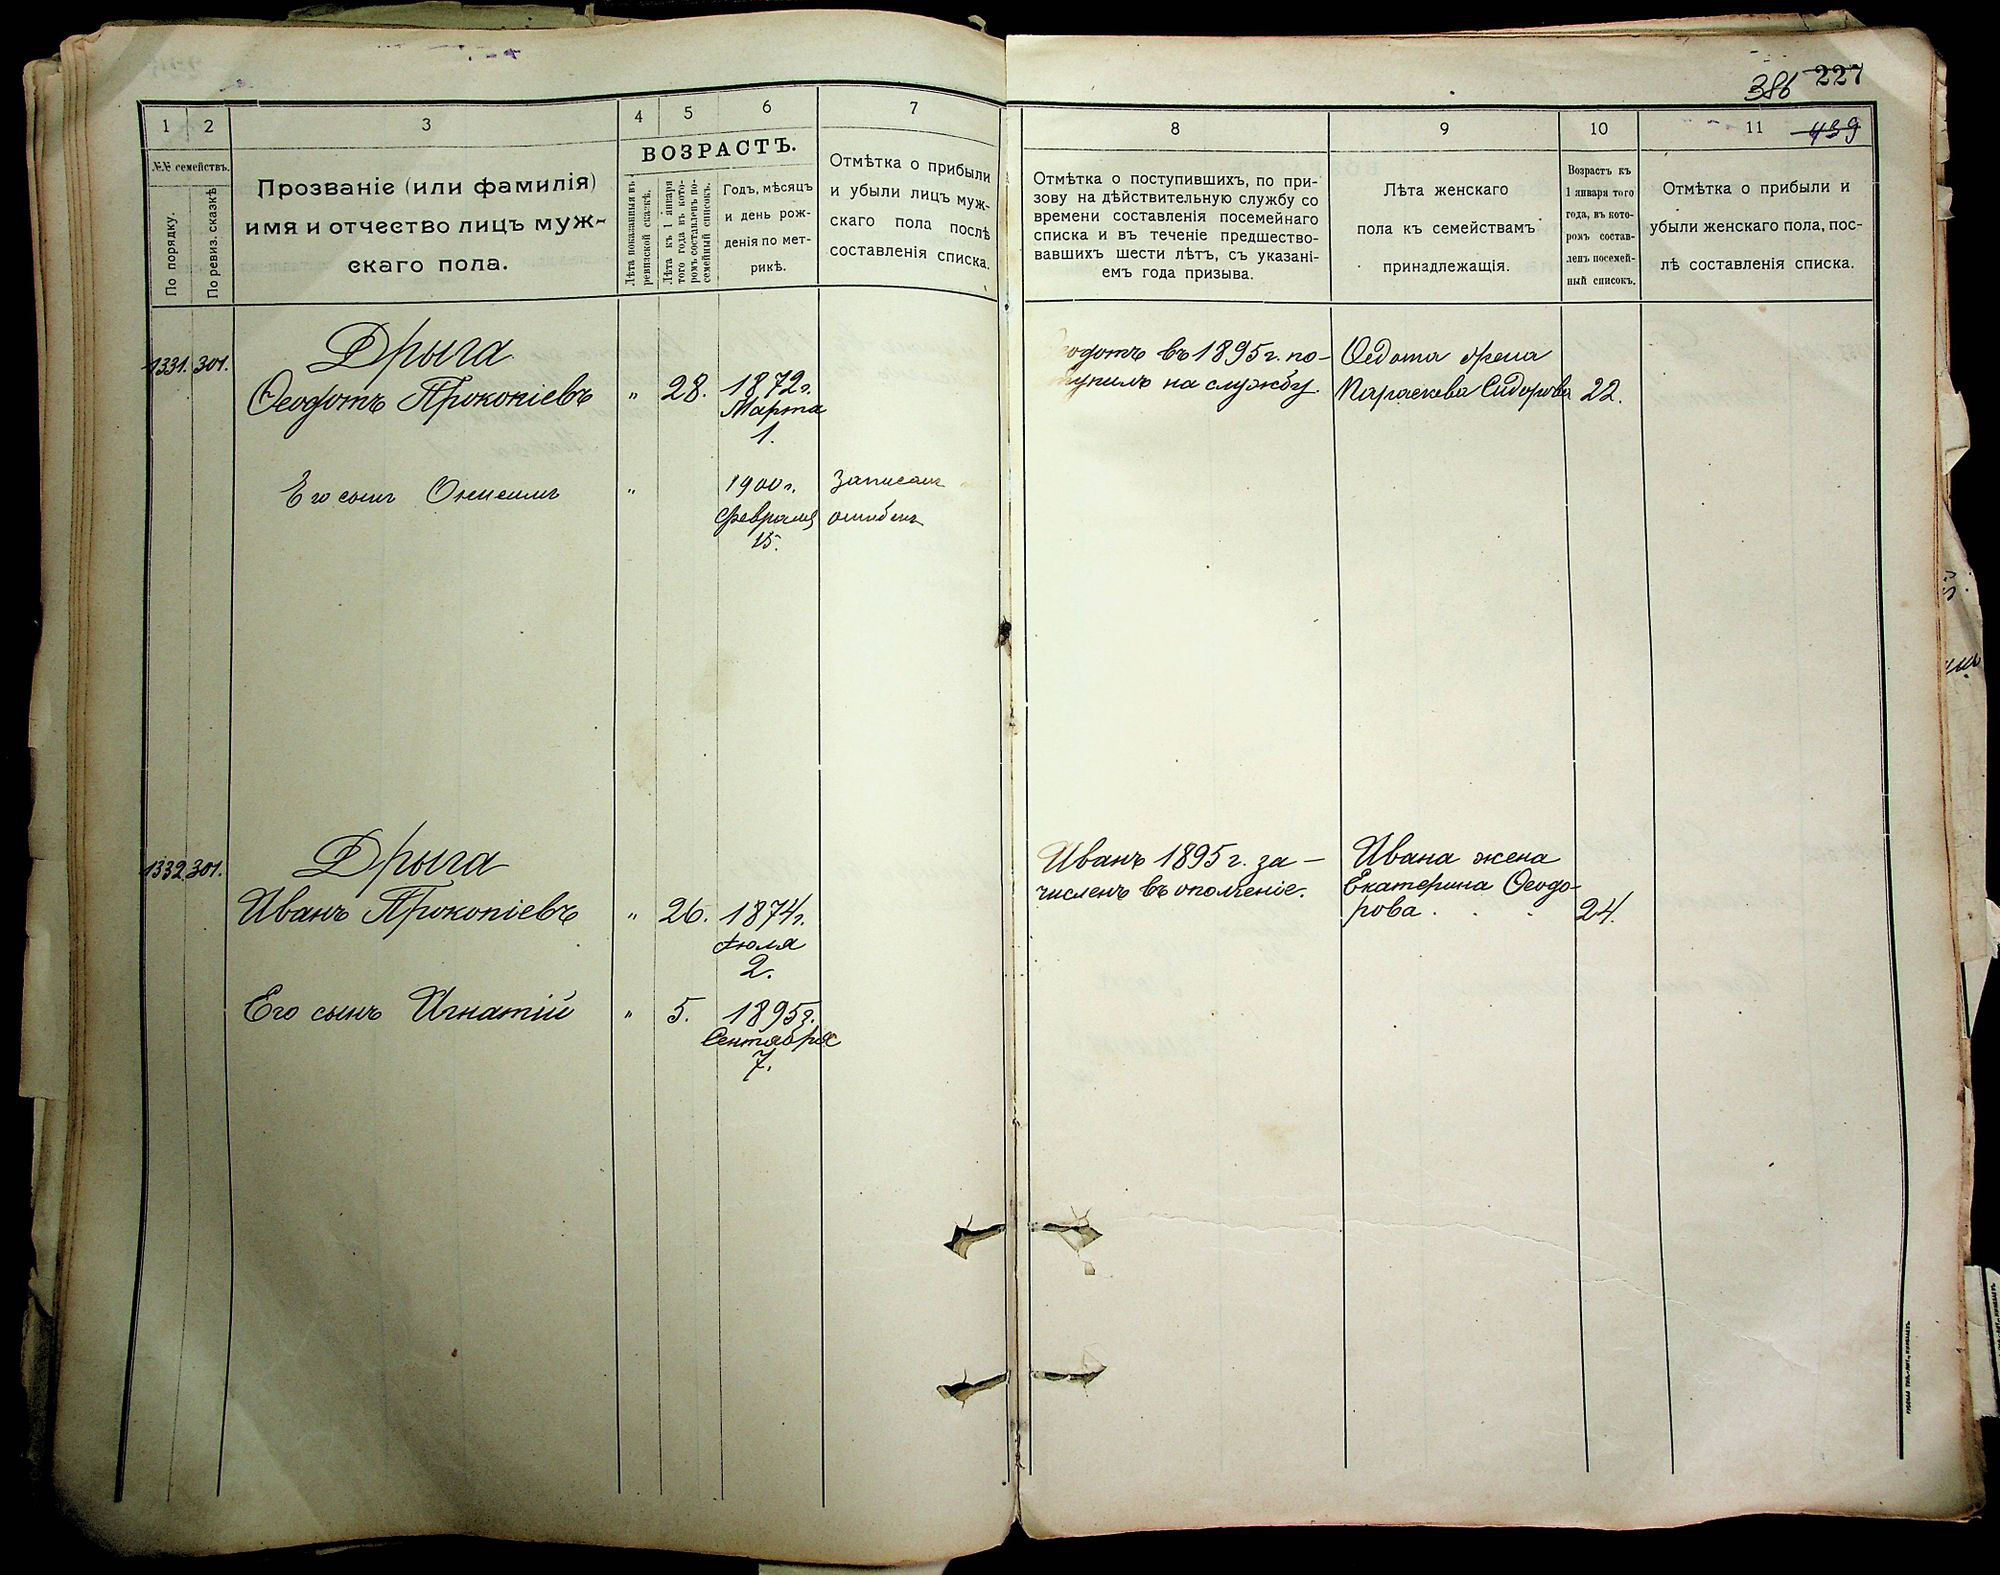 386 227
1 2 3 4 5 6 7
№№ семействъ.
По порядку.
По ревиз. сказкѣ
Прозваніе (или фамилія)
имя и отчество лицъ муж-
скаго пола.
ВОЗРАСТЪ.
Лѣта показанныя въ
ревизской сказкѣ.
Лѣта къ 1 января
того года въ кото-
ромъ составленъ по-
семейный списокъ.
Годъ, мѣсяцъ
и день рож-
денія по мет-
рикѣ.
Отмѣтка о прибыли
и убыли лицъ муж-
скаго пола послѣ
составленія списка.
8 9 10 11 439
Отмѣтка о поступившихъ, по при-
зову на дѣйствительную службу со
времени составленія посемейнаго
списка и въ теченіе предшество-
вавшихъ шести лѣтъ, съ указані-
емъ года призыва.
Лѣта женскаго
пола къ семействамъ
принадлежащія.
Возрастъ къ
1 января того
года, въ кото-
ромъ состав-
ленъ посемей-
ный списокъ.
Отмѣтка о прибыли и
убыли женскаго пола, пос-
лѣ составленія списка.
1331. 301.
Дрыга
Ѳеодотъ Прокопіевъ " 28. 1872 г.
Марта
1.
Его сынъ Онисимъ " 1900 г.
Февраля
15.
Записанъ
ошибкъ
одотъ въ 1895 г. по-
тупилъ на службу.
Ѳедота жена
Параскева Сидорова 22.
1332. 301.
Дрыга
Иванъ Прокопіевъ " 26. 1874 г.
Іюля
2.
Его сынъ Игнатій " 5. 1895 г.
Сентября
7.
Иванъ 1895 г. за-
численъ въ ополченіе.
Ивана жена
Екатерина Ѳеодо-
рова . . 24.